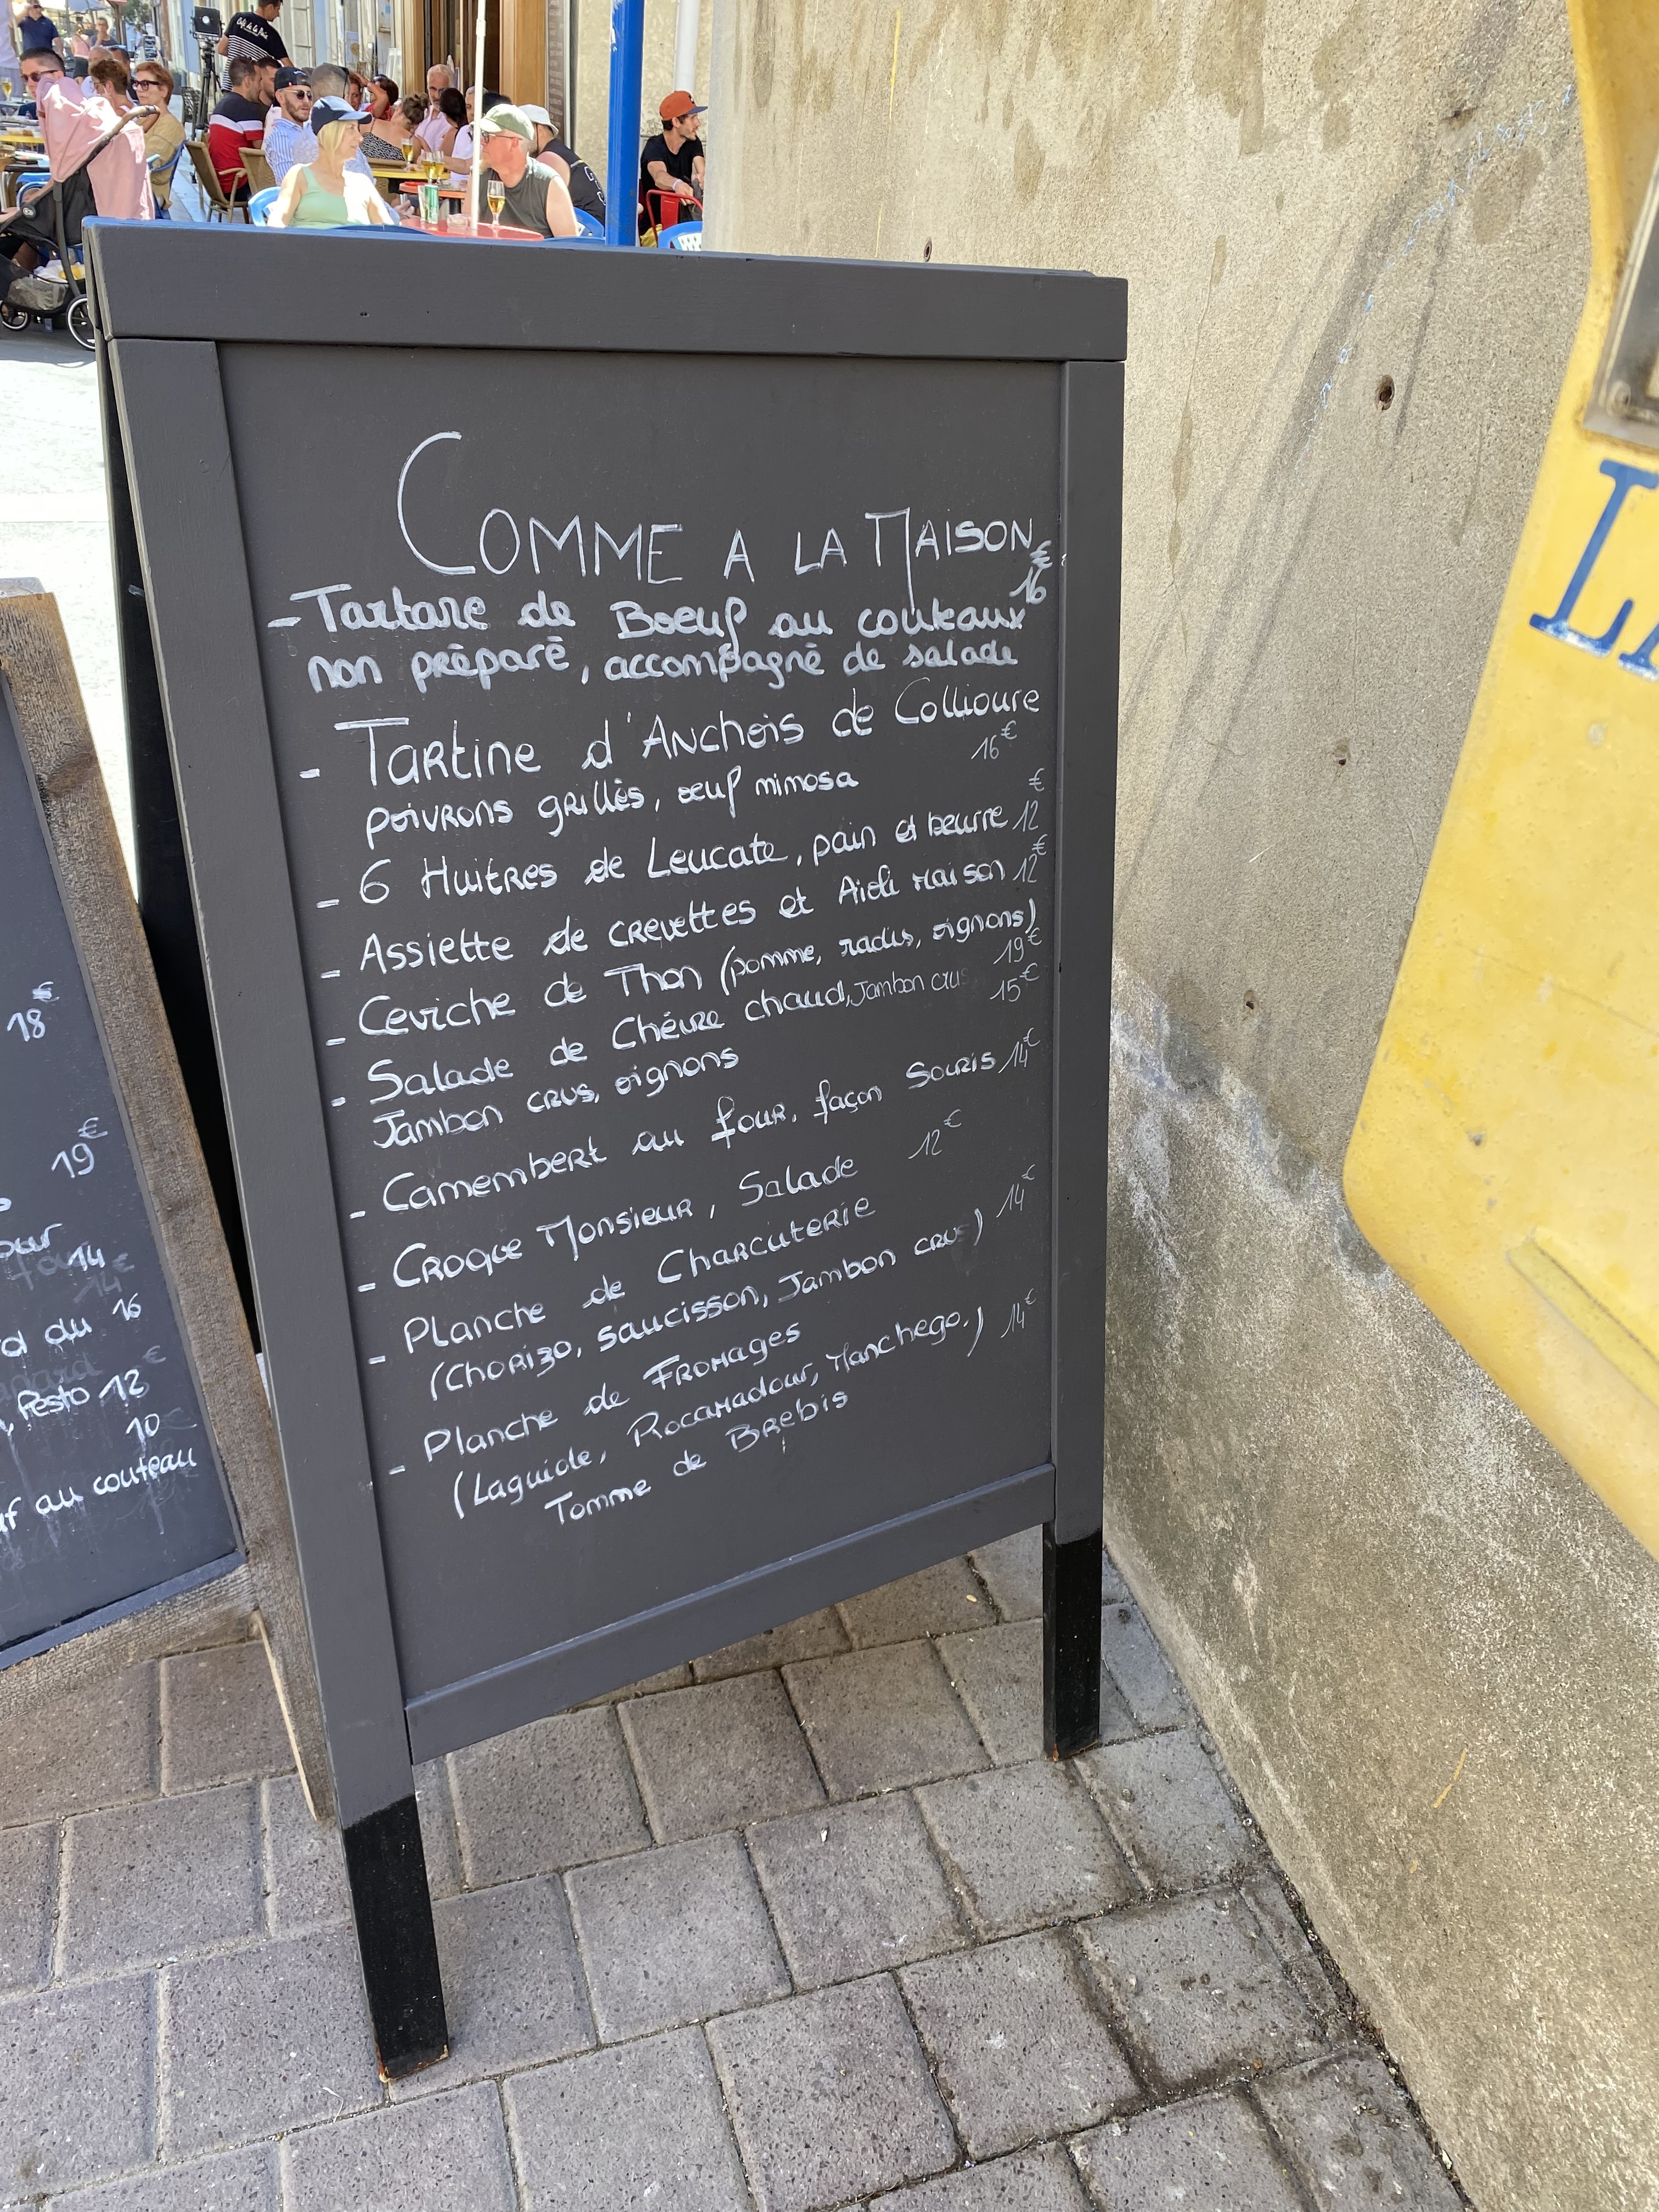 COMME A LA MAISON
- Tartare de Boeuf au couteaux 16€
non préparé, accompagné de salade
- Tartine d'Anchois de Collioure
16€
poivrons grillés, oeuf mimosa
- 6 Huitres de Leucate, pain et beurre 12€
- Assiette de crevettes et Aioli maison 12€
- Ceviche de Thon (pomme, radis, oignons)
19€
- Salade de Chèvre chaud, Jambon crus 15€
Jambon crus, oignons
- Camembert au four, façon Souris 14€
- Croque Monsieur, Salade 12€
- Planche de Charcuterie
(Chorizo, saucisson, Jambon crus) 14€
- Planche de Fromages
(Laguiole, Rocamadour, Manchego.) 14€
Tomme de Brebis
18€
19€
our
14
14€
16
du
Pesto 12€
10€
au couteau